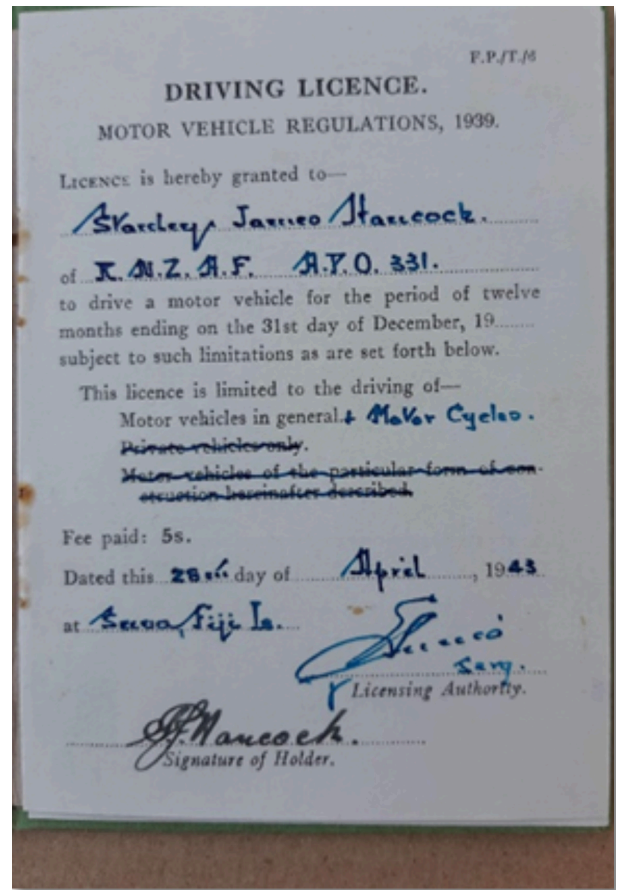 F.P./T./6
DRIVING LICENCE.
MOTOR VEHICLE REGULATIONS, 1939.
LICENCE is hereby granted to—
Stanley James Hancock.
of R.N.Z.A.F. A.P.O. 331.
to drive a motor vehicle for the period of twelve
months ending on the 31st day of December, 19
subject to such limitations as are set forth below.
This licence is limited to the driving of—
Motor vehicles in general & Motor Cycles.
Private vehicles only.
Motor vehicles of the particular form of con-
struction hereinafter described.
Fee paid: 5s.
Dated this 28th day of April, 1943
at Suva, Fiji Is.
Licensing Authority.
SJHancock.
Signature of Holder.